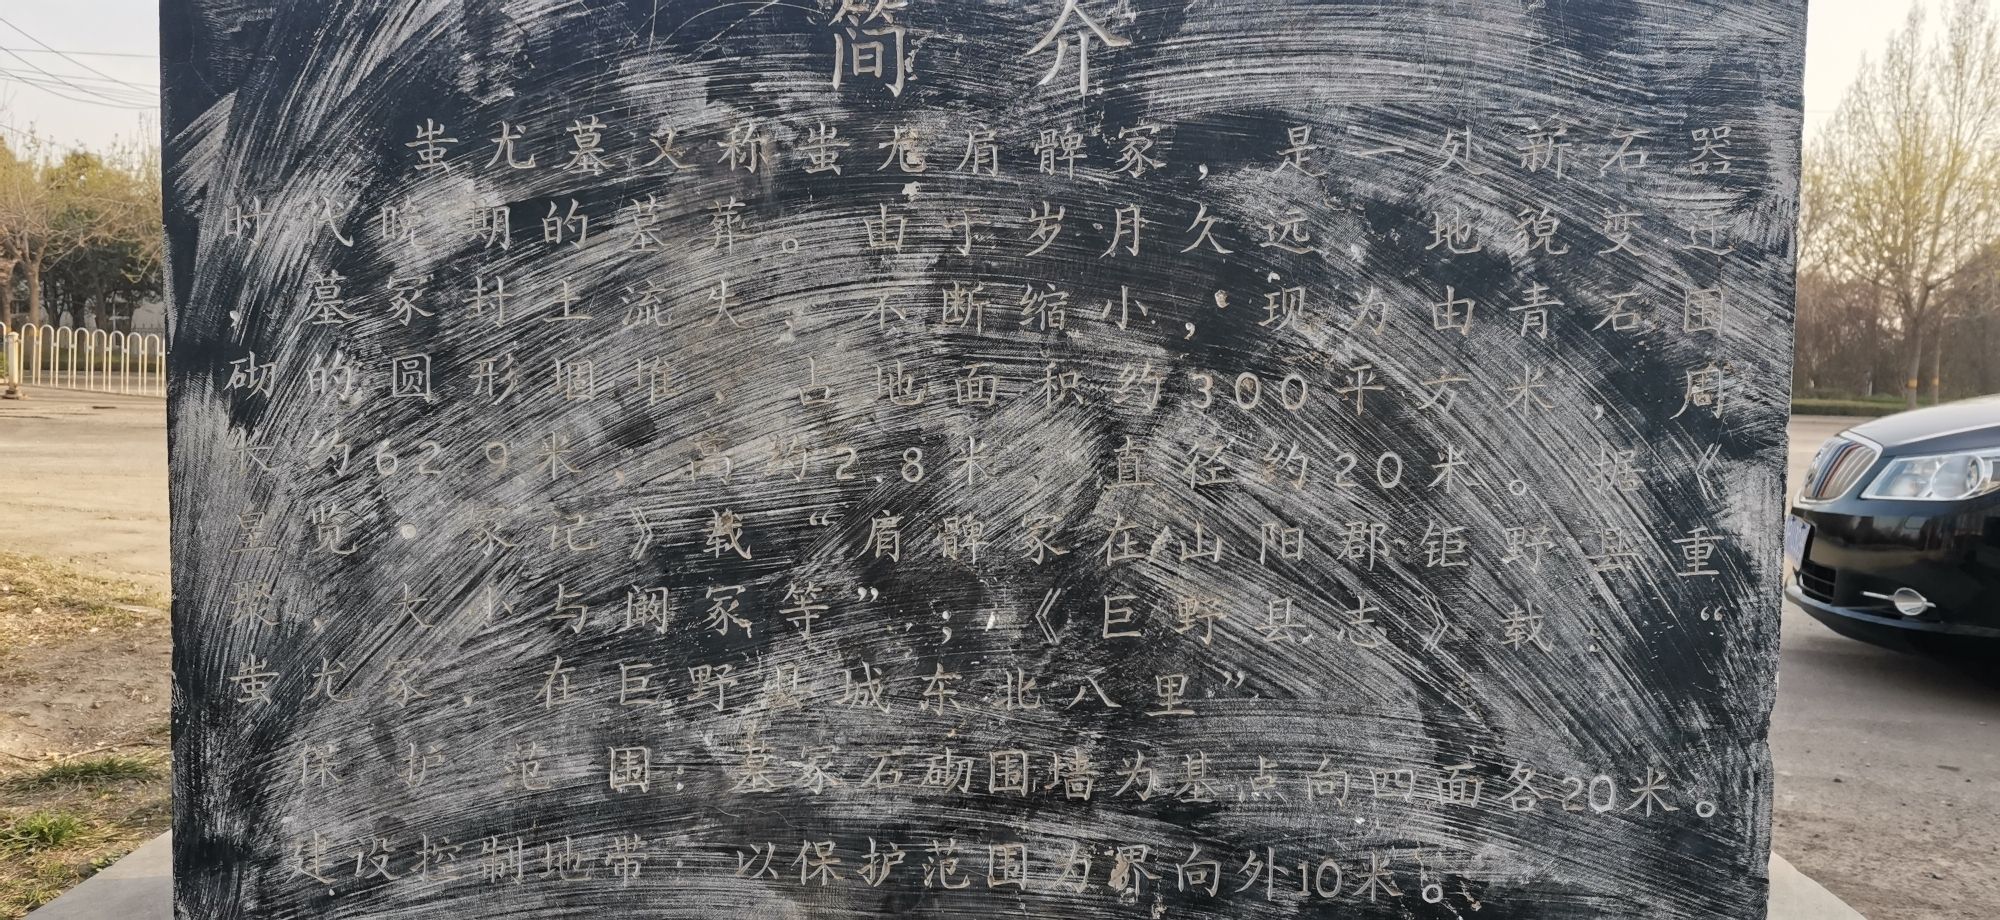 简介
蚩尤墓又称蚩尤肩髀冢，是一处新石器
时代晚期的墓葬。由于岁月久远，地貌变迁
，墓冢封土流失，不断缩小，现为由青石围
砌的圆形堌堆，占地面积约300平方米，周
长约62.9米，高约2.8米，直径约20米。据《
皇览·冢记》载“肩髀冢在山阳郡钜野县重
聚，大小与阚冢等”；《巨野县志》载：“
蚩尤冢，在巨野县城东北八里”
保护范围：墓冢石砌围墙为基点向四面各20米。
建设控制地带：以保护范围为界向外10米。